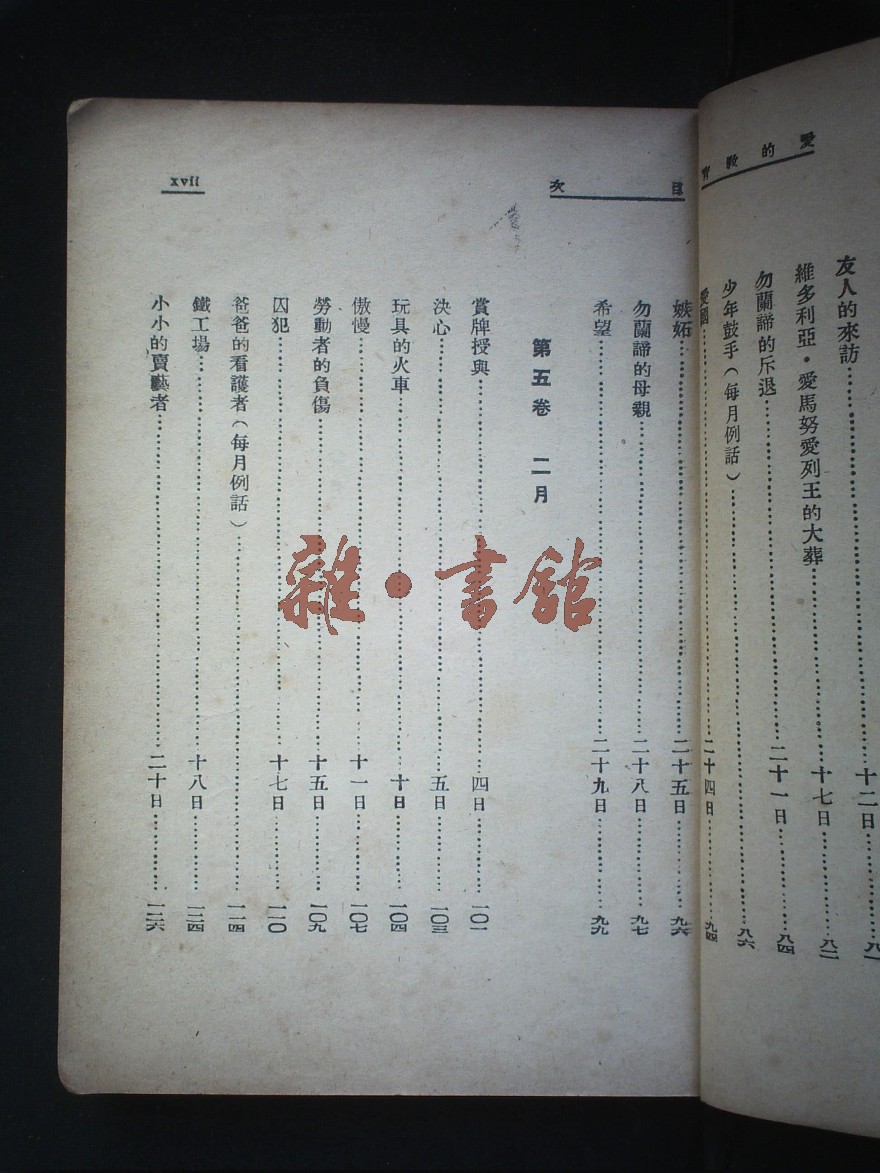 愛的教育
友人的來訪……十二日……八一
維多利亞·愛馬努愛列王的大葬……十七日……八二
勿蘭諦的斥退……二十一日……八四
少年鼓手（每月例話）……八六
愛國……二十四日……九四
目次
嫉妬……二十五日……九六
勿蘭諦的母親……二十八日……九七
希望……二十九日……九九
第五卷 二月
賞牌授與……四日……一〇一
決心……五日……一〇三
玩具的火車……十日……一〇四
傲慢……十一日……一〇七
勞動者的負傷……十五日……一〇九
囚犯……十七日……一一〇
爸爸的看護者（每月例話）……一一四
鐵工場……十八日……一二四
小小的賣藝者……二十日……一二六
xvii
雜·書館